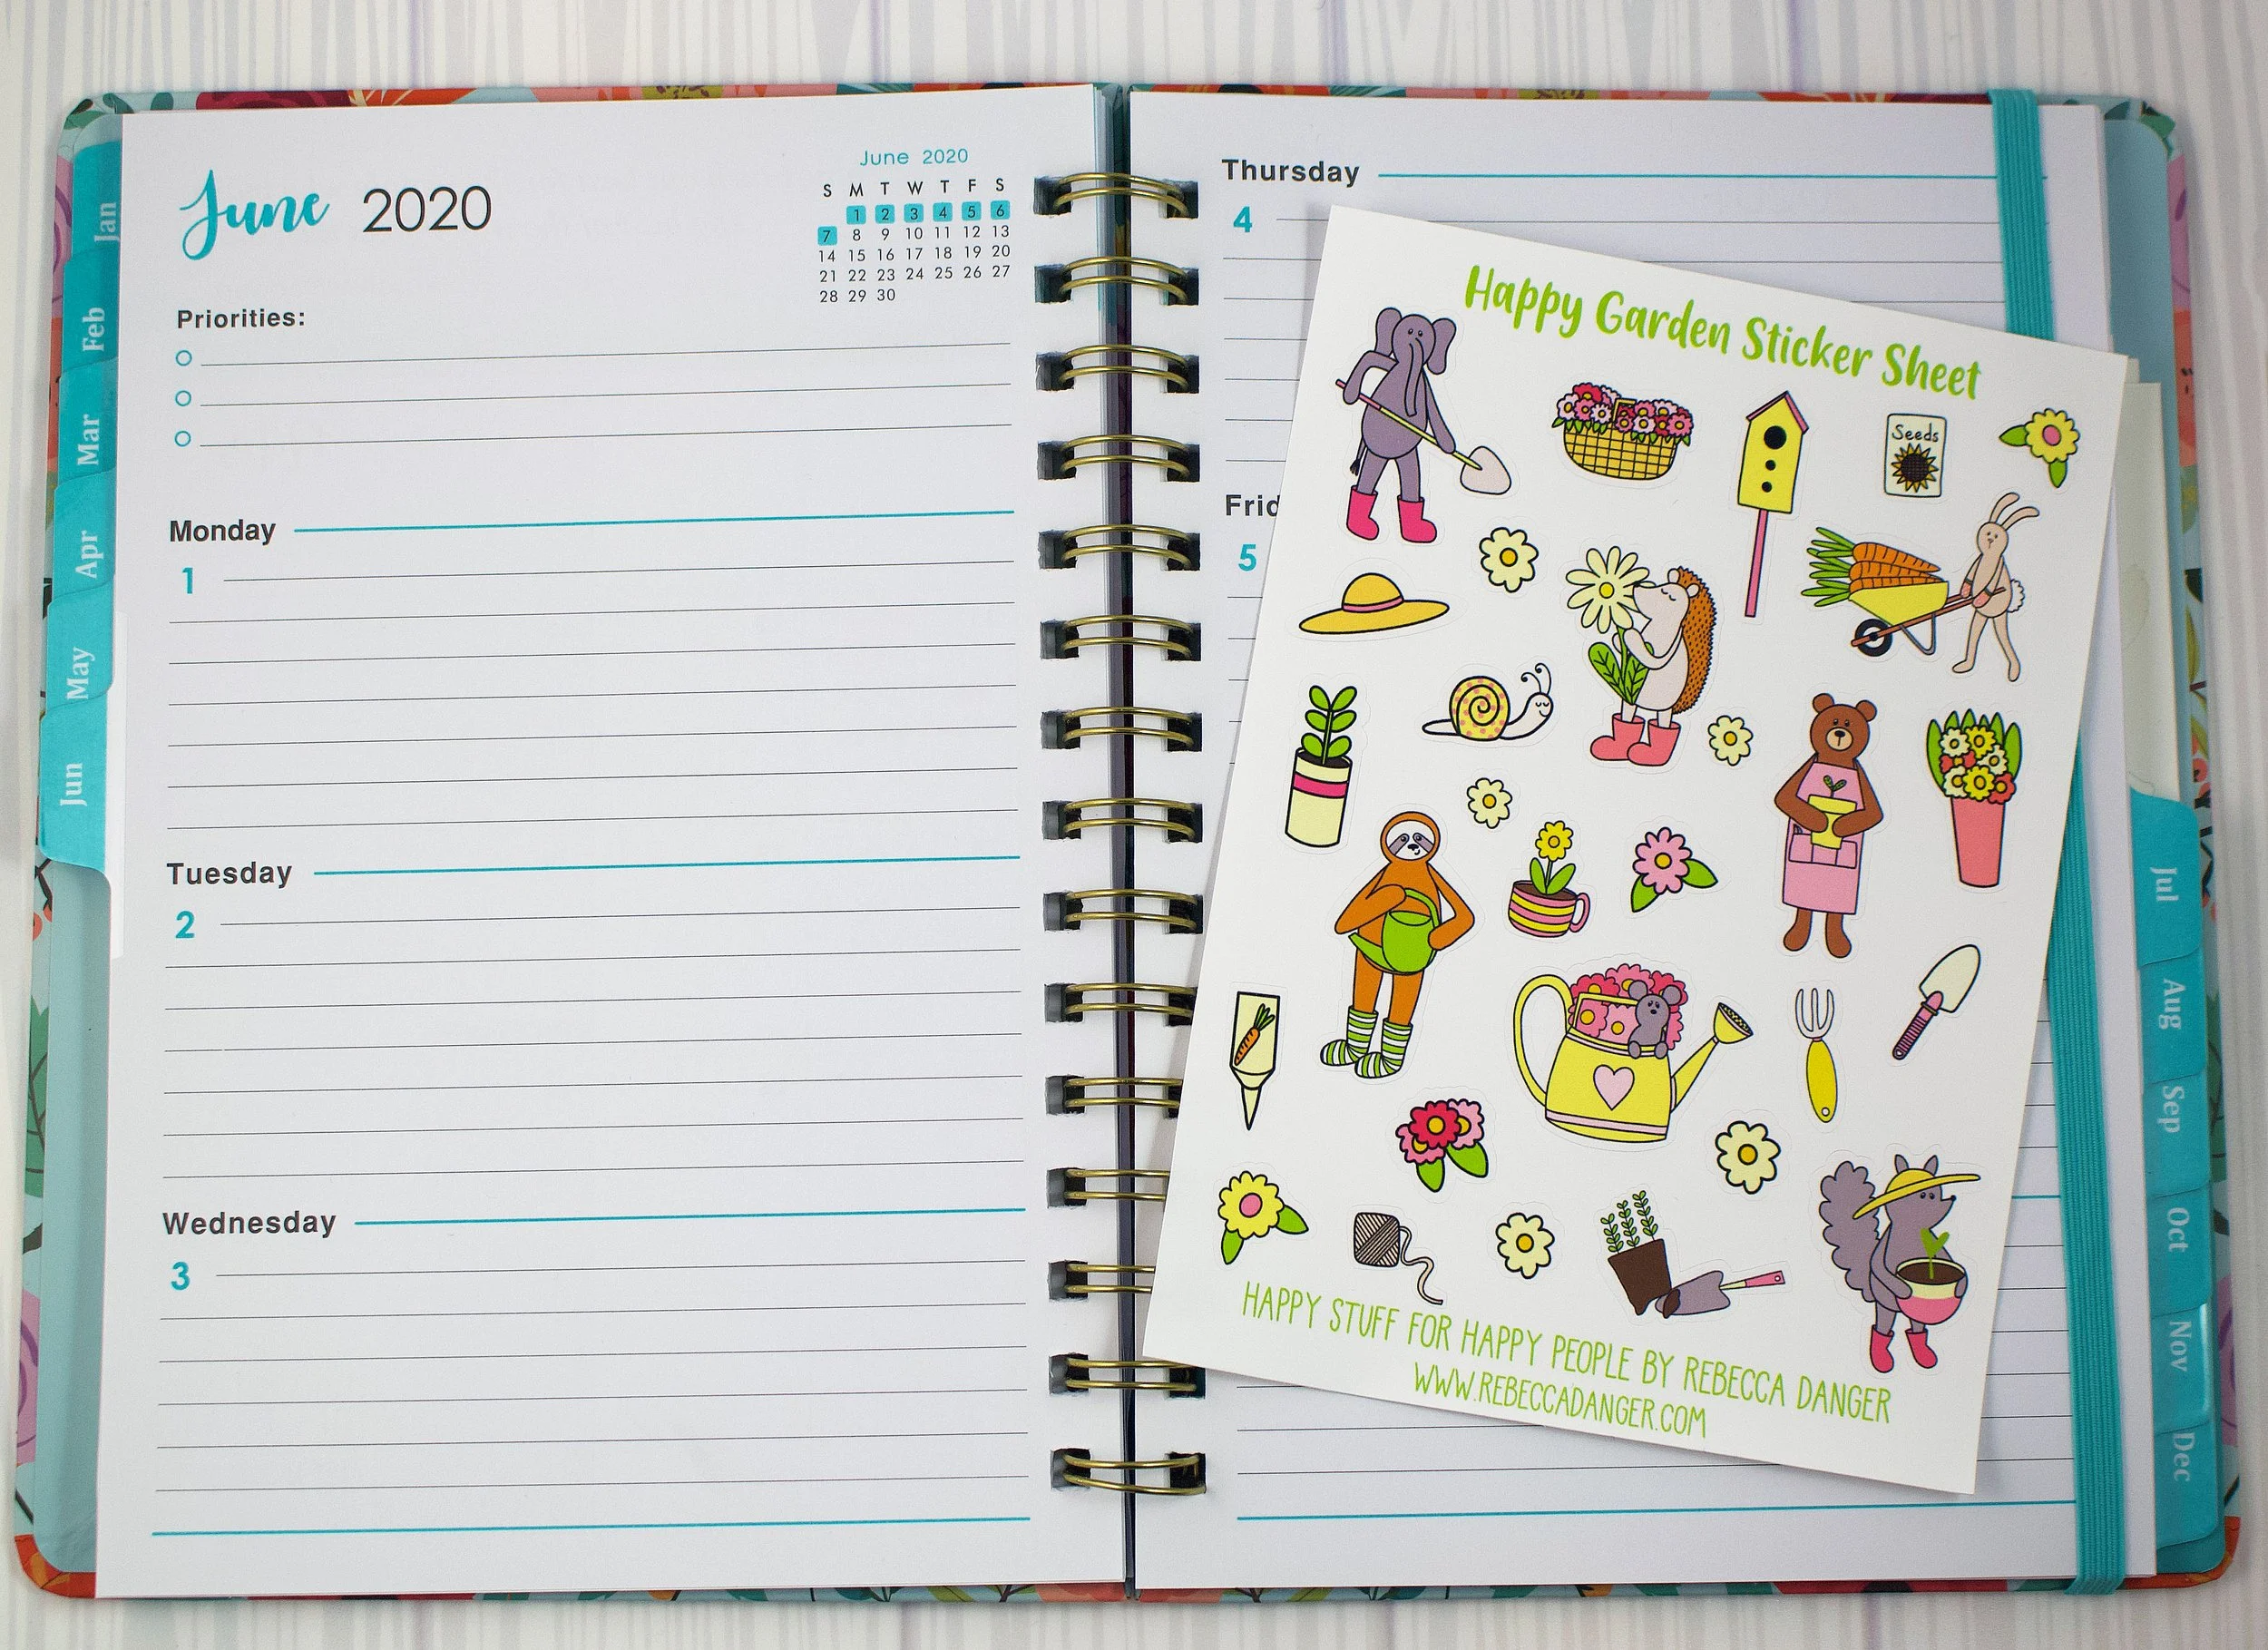 Jan
Feb
Mar
Apr
May
Jun
June 2020
June 2020
S M T W T F S
1 2 3 4 5 6
7 8 9 10 11 12 13
14 15 16 17 18 19 20
21 22 23 24 25 26 27
28 29 30
Priorities:
Monday
1
Tuesday
2
Wednesday
3
Thursday
4
Frid
5
Happy Garden Sticker Sheet
Seeds
HAPPY STUFF FOR HAPPY PEOPLE BY REBECCA DANGER
WWW.REBECCADANGER.COM
Jul
Aug
Sep
Oct
Nov
Dec